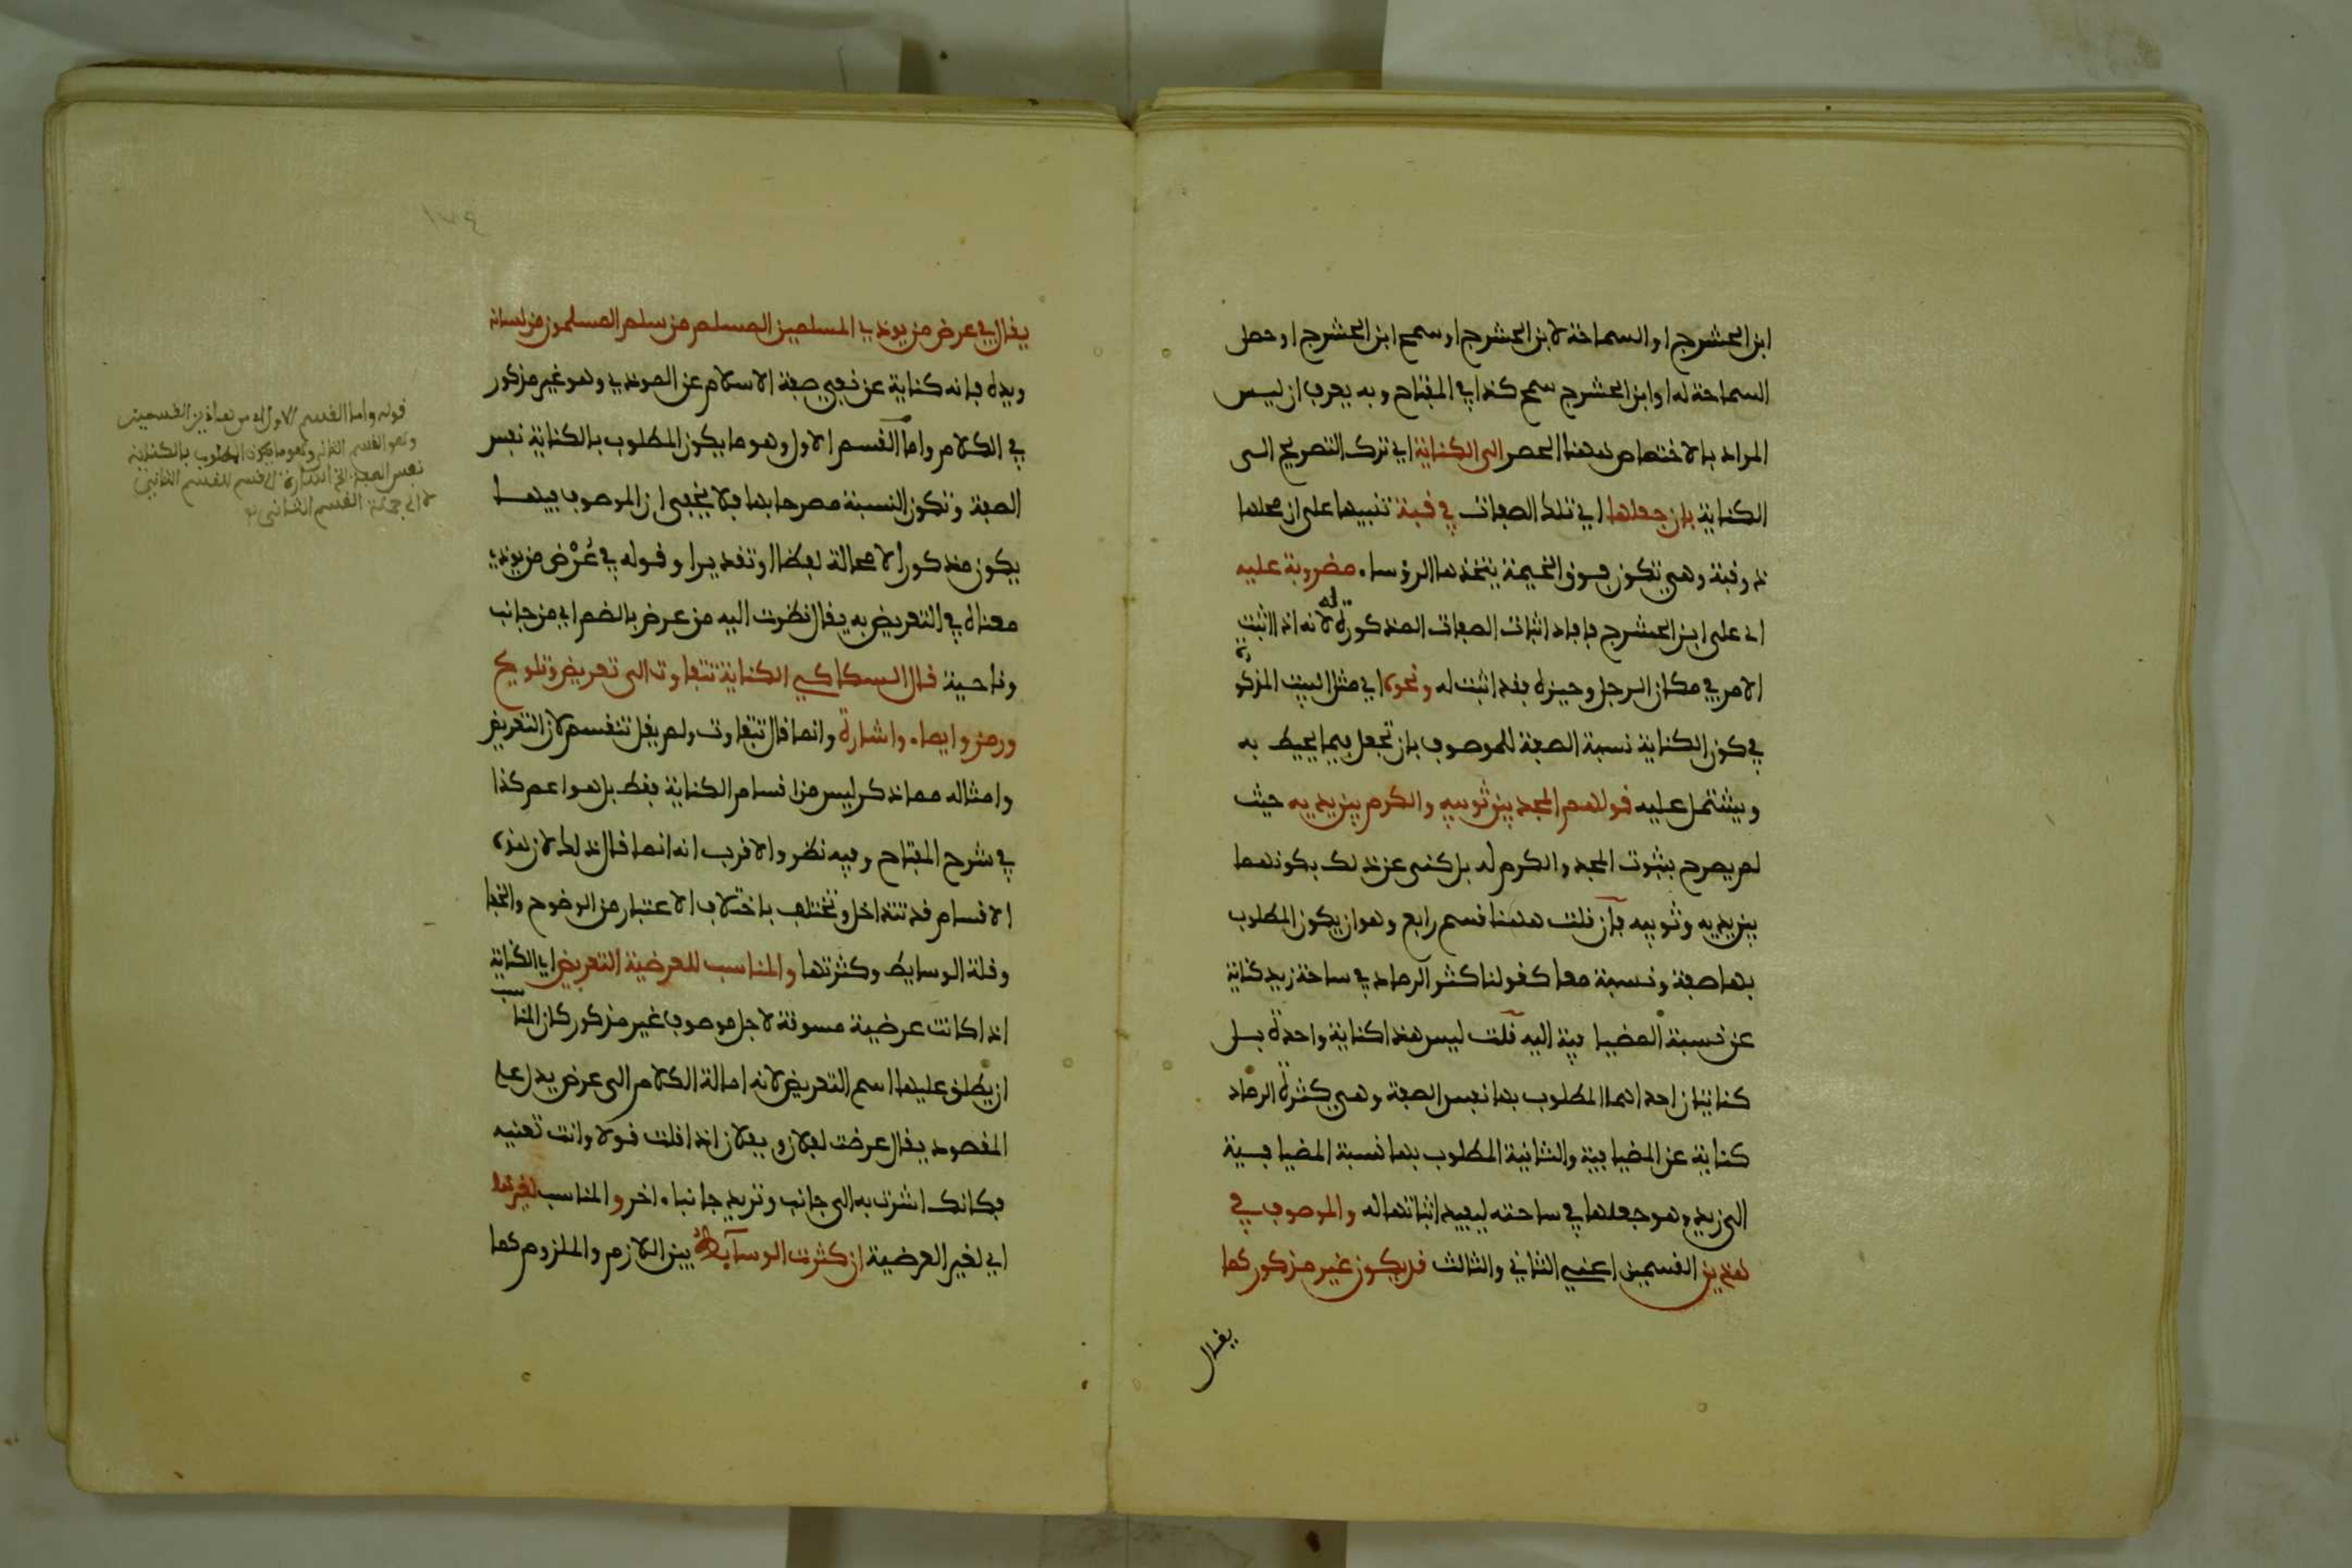 ابن الحشرج او السماحة لابن الحشرج او سمح ابن الحشرج او حصل
السماحة له او ابن الحشرج سمح كذا في المفتاح وبه يعرف ان ليس
المراد بالاختصاص ههنا الحصر الى الكناية اي ترك التصريح الى
الكناية بان جعلها اي تلك الصفات في قبة تنبيها على ان محلها
ذو قبة وهي تكون فوق الخيمة يتخذها الرؤساء مضروبة عليه
اي على ابن الحشرج فافاد اثبات الصفات المذكورة له لانه اذا اثبت
الامر في مكان الرجل وحيزه فقد اثبت له ونحوه اي مثل البيت المذكور
في كون الكناية نسبة الصفة للموصوف بان تجعل فيما يحيط به
ويشتمل عليه قولهم المجد بين ثوبيه والكرم بين برديه حيث
لم يصرح بثبوت المجد والكرم له بل كنى عن ذلك بكونهما
بين برديه وثوبيه فان قلت ههنا قسم رابع وهو ان يكون المطلوب
بها صفة ونسبة معا كقولنا كثر الرماد في ساحة زيد كناية
عن نسبة المضيافية اليه قلت ليس هذا كناية واحدة بل
كنايتان احداهما المطلوب بها نفس الصفة وهي كثرة الرماد
كناية عن المضيافية والثانية المطلوب بها نسبة المضيافية
الى زيد وهو جعلها في ساحته ليفيد اثباتها له والموصوف في
هذين القسمين اعني الثاني والثالث قد يكون غير مذكور كما
يقال
يقال في عرض من يوذي المسلمين المسلم من سلم المسلمون من لسانه
ويده فانه كناية عن نفي صفة الاسلام عن الموذي وهو غير مذكور
في الكلام واما القسم الاول وهو ما يكون المطلوب بالكناية نفس
الصفة وتكون النسبة مصرحا بها فلا يخفى ان الموصوف فيها
يكون مذكورا لا محالة لفظا او تقديرا وقوله في عُرْض من يوذي
معناه في التعريض به يقال نظرت اليه من عرض بالضم اي من جانب
وناحية قال السكاكي الكناية تتفاوت الى تعريض وتلويح
ورمز وايماء واشارة وانما قال تتفاوت ولم يقل تنقسم لان التعريض
وامثاله مما ذكر ليس من اقسام الكناية فقط بل هو اعم كذا
في شرح المفتاح وفيه نظر والاقرب انه انما قال ذلك لان هذه
الاقسام قد تتداخل وتختلف باختلاف الاعتبار من الوضوح والخفا
وقلة الوسايط وكثرتها والمناسب للعرضية التعريض اي الكناية
اذا كانت عرضية مسوقة لاجل موصوف غير مذكور كان المناسب
ان يطلق عليها اسم التعريض لانه امالة الكلام الى عرض يدل على
المقصود يقال عرضت لفلان وبفلان اذا قلت قولا وانت تعنيه
فكانك اشرت به الى جانب وتريد جانبا اخر والمناسب لغيرها
اي لغير العرضية ان كثرت الوسايط بين اللازم والملزوم كما
١٧٤
قوله واما القسم الاول من هاذين القسمين
وهو القسم الثاني وهو ما يكون المطلوب بالكناية
نفس الصفة القسم الثاني
القسم الثاني